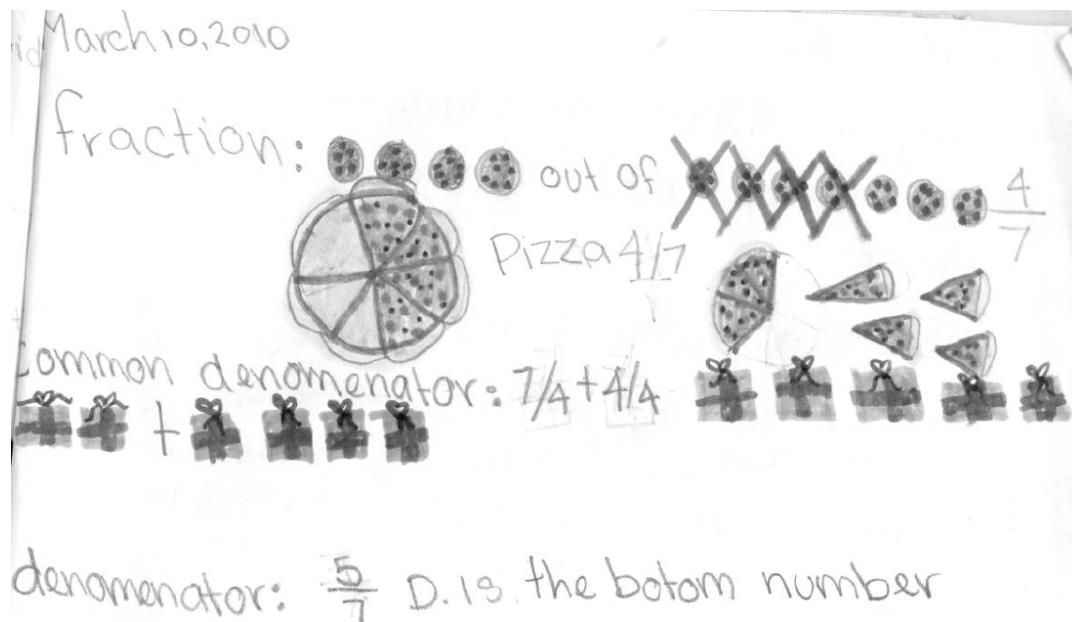 March 10, 2010
fraction: out of 4/7
Pizza 4/7
Common denomenator: 7/4 + 4/4
+
denomenator: 5/7 D. Is the botom number